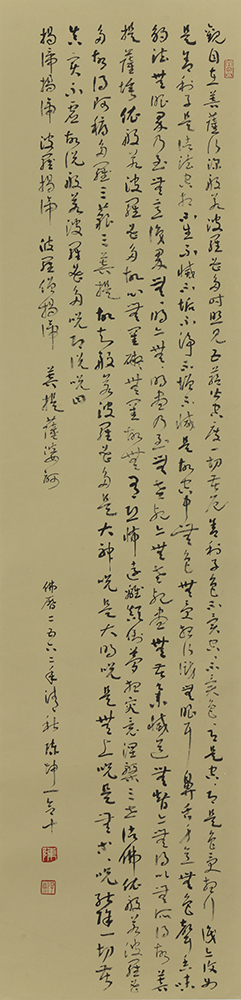 觀自在菩薩行深般若波羅蜜多時照見五蘊皆空度一切苦厄舍利子色不異空空不異色色即是空空即是色受想行識亦復如
是舍利子是諸法空相不生不滅不垢不淨不增不減是故空中無色無受想行識無眼耳鼻舌身意無色聲香味
觸法無眼界乃至無意識界無無明亦無無明盡乃至無老死亦無老死盡無苦集滅道無智亦無得以無所得故菩
提薩埵依般若波羅蜜多故心無罣礙無罣礙故無有恐怖遠離顛倒夢想究竟涅槃三世諸佛依般若波羅蜜
多故得阿耨多羅三藐三菩提故知般若波羅蜜多是大神呪是大明呪是無上呪是無等等呪能除一切苦
真實不虛故說般若波羅蜜多呪即說呪曰
揭諦揭諦 波羅揭諦 波羅僧揭諦 菩提薩婆訶
佛曆二五六二年清秋陳坤一合十